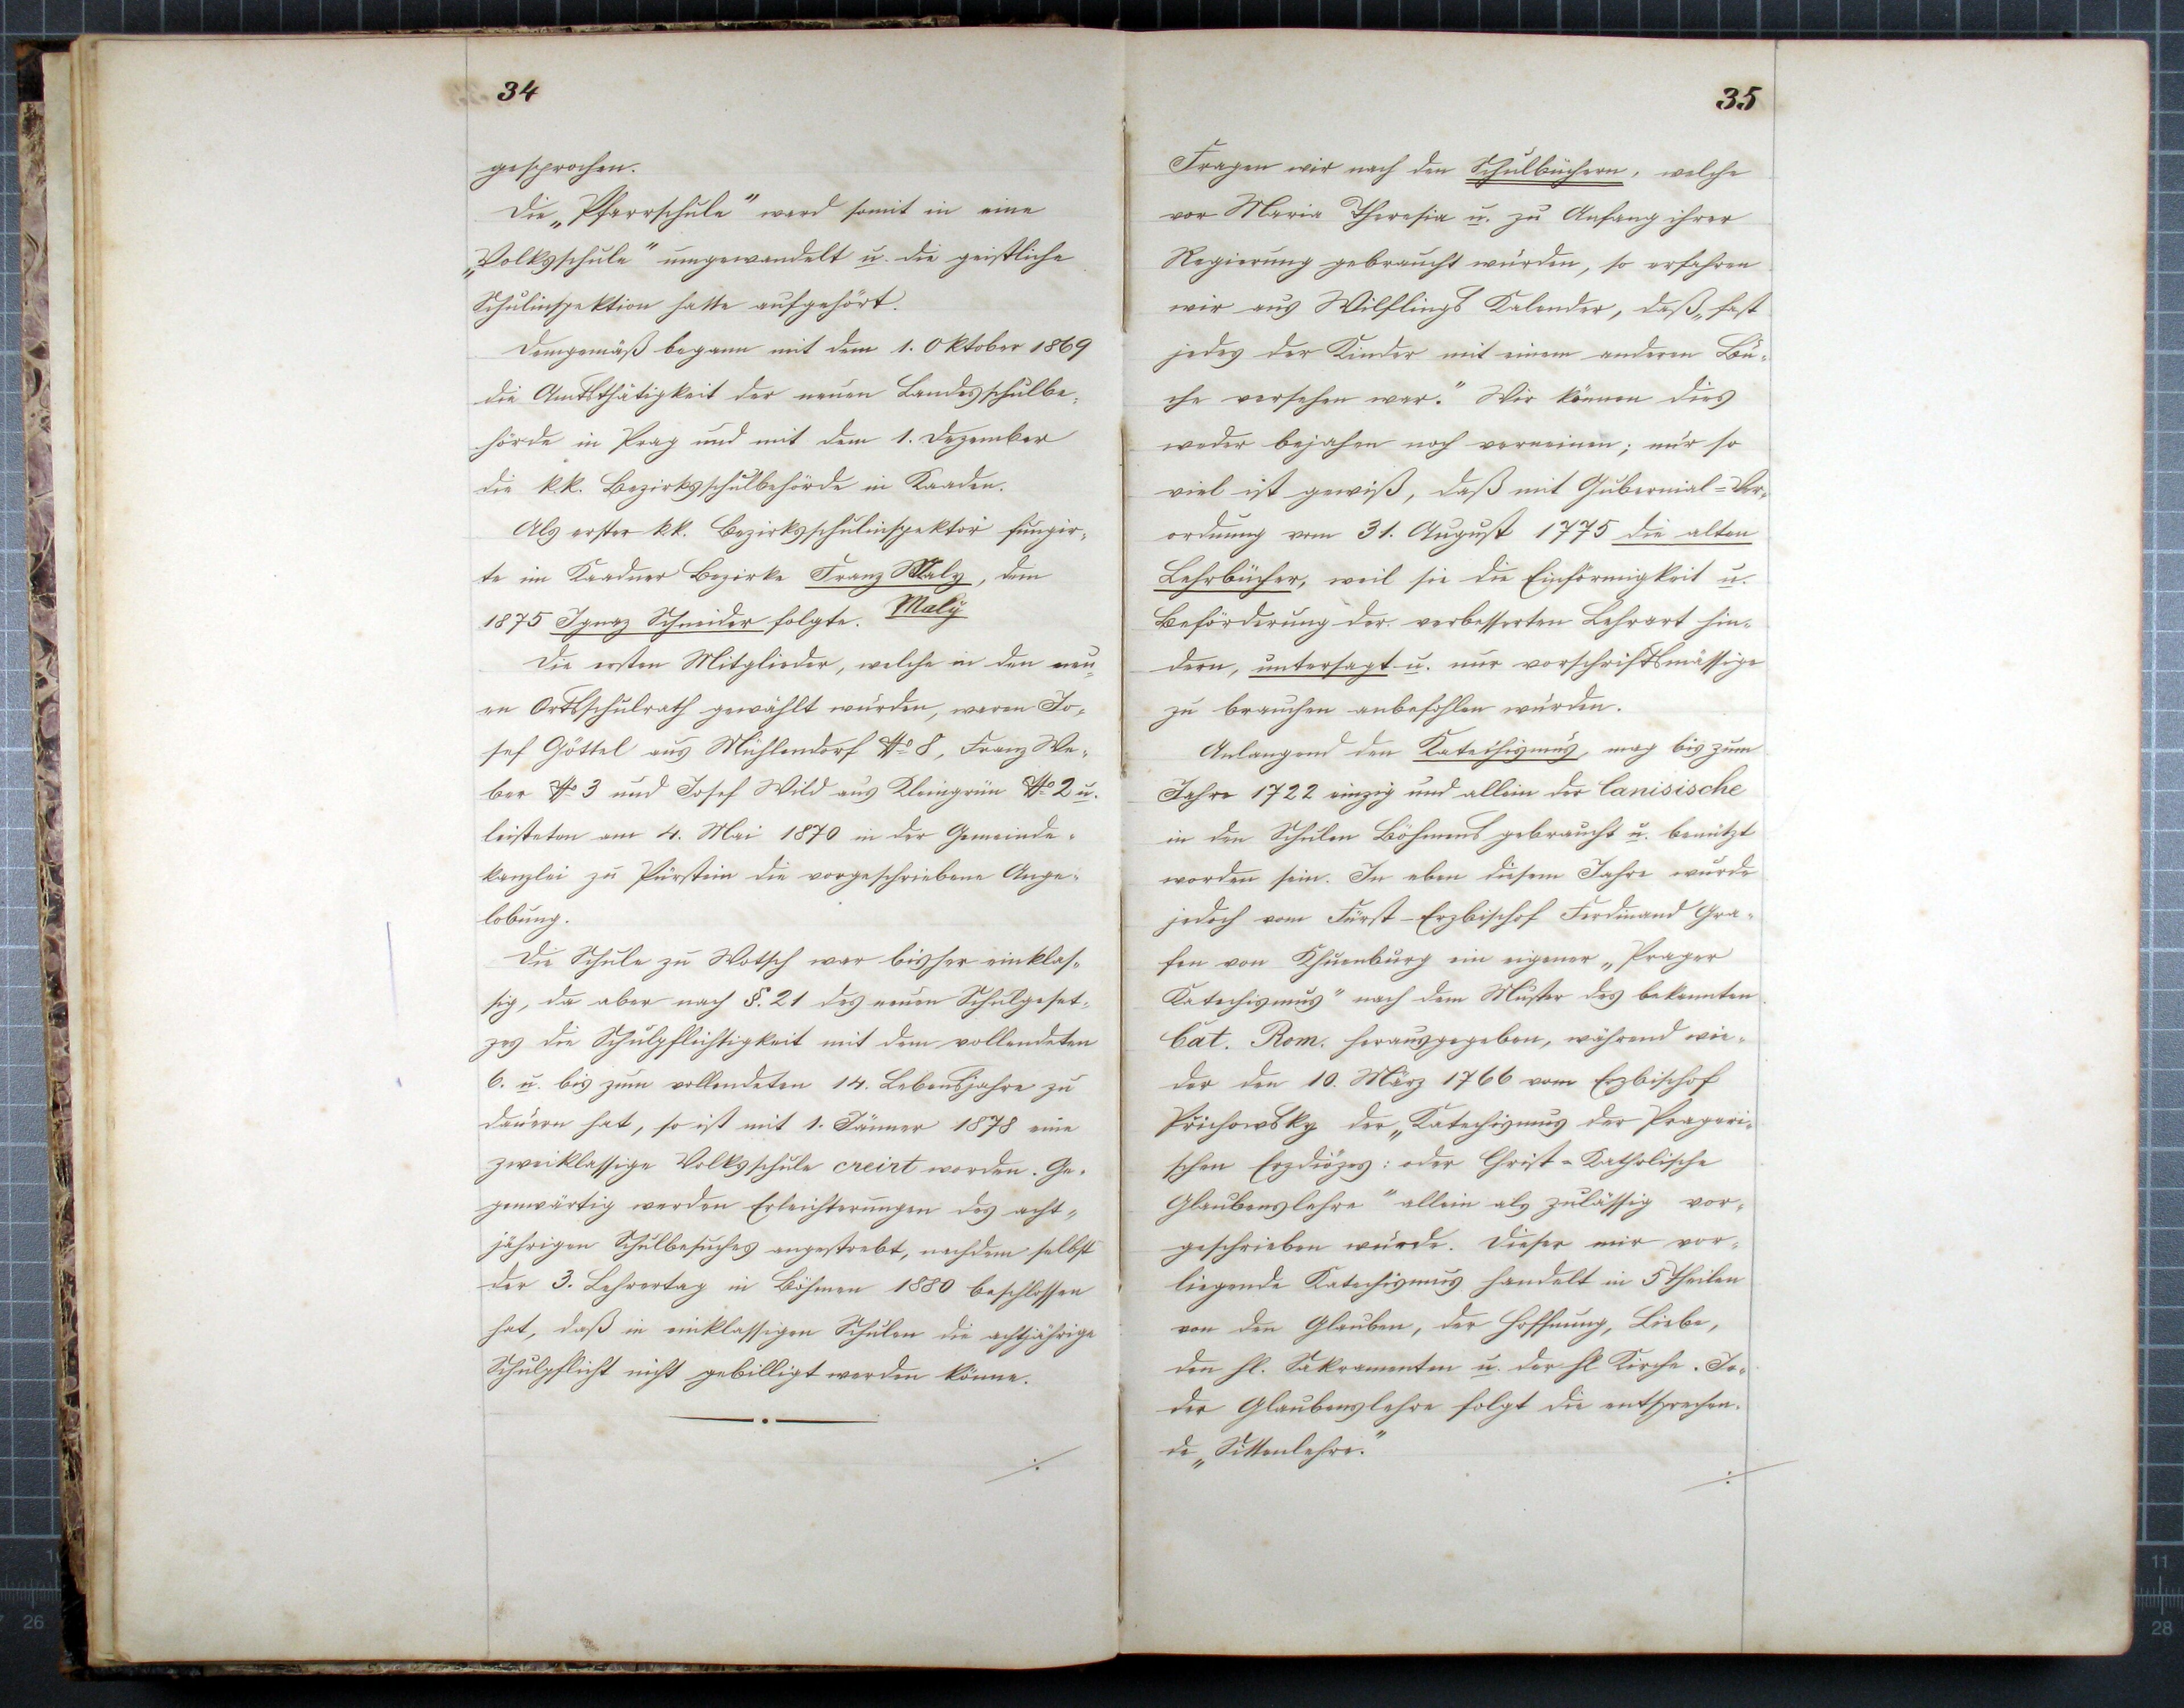 34
gesprochen.
Die „Pfarrschule" ward somit in eine
„Volksschule" umgewandelt u. die geistliche
Schulinspektion hatte aufgehört.
Demgemäß begann mit dem 1. Oktober 1869
die Amtsthätigkeit der neuen Landesschulbe-
hörde in Prag und mit dem 1. Dezember
die k.k. Bezirksschulbehörde in Kaaden.
Als erster kk. Bezirksschulinspektor fungir-
te im Kaadner Bezirke Franz Maly, dem
1875 Ignaz Schneider folgte. Malÿ
Die ersten Mitglieder, welche in den neu-
en Ortsschulrath gewählt wurden, waren Jo-
sef Göttel aus Mühlendorf No 8, Franz We-
ber No 3 und Josef Wild aus Kleingrün No 2 u.
leisteten am 4. Mai 1870 in der Gemeinde-
kanzlei zu Pürstein die vorgeschriebene Ange-
lobung.
Die Schule zu Wotsch war bisher einklas-
sig, da aber nach §. 21 des neuen Schulgeset-
zes die Schulpflichtigkeit mit dem vollendeten
6. u. bis zum vollendeten 14. Lebensjahre zu
dauern hat, so ist mit 1. Jänner 1878 eine
zweiklassige Volksschule creirt worden. Ge-
genwärtig werden Erleichterungen des acht-
jährigen Schulbesuches angestrebt, nachdem selbst
der 3. Lehrertag in Böhmen 1880 beschlossen
hat, daß in einklassigen Schulen die achtjährige
Schulpflicht nicht gebilligt werden könne.
./.
35
Fragen wir nach den Schulbüchern, welche
vor Maria Theresia u. zu Anfang ihrer
Regierung gebraucht wurden, so erfahren
wir aus Wilflings Kalender, daß „fast
jedes der Kinder mit einem anderen Bu-
che versehen war." Wir können dies
weder bejahen noch verneinen; nur so
viel ist gewiß, daß mit Gubernial-Ver-
ordnung vom 31. August 1775 die alten
Lehrbücher, weil sie die Einförmigkeit u.
Beförderung der verbesserten Lehrart hin-
dern, untersagt u. nur vorschriftsmässige
zu brauchen anbefohlen wurden.
Anlangend den Katechismus, mag bis zum
Jahre 1722 einzig und allein der Canisische
in den Schulen Böhmens gebraucht u. benützt
worden sein. In eben diesem Jahre wurde
jedoch vom Fürst-Erzbischof Ferdinand Gra-
fen von Khuenburg ein eigener „Prager
Katechismus" nach dem Muster des bekannten
Cat. Rom. herausgegeben, während wie-
der den 10. März 1766 vom Erzbischof
Přichowsky der „Katechismus der Prageri-
schen Erzdiözes: oder Christ-Katholische
Glaubenslehre" allein als zulässig vor-
geschrieben wurde. Dieser mir vor-
liegende Katechismus handelt in 5 Theilen
von den Glauben, der Hoffnung, Liebe,
den hl. Sakramenten u. der hl Kirche. Je-
der Glaubenslehre folgt die entsprechen-
de „Sittenlehre."
./.
11
28
26